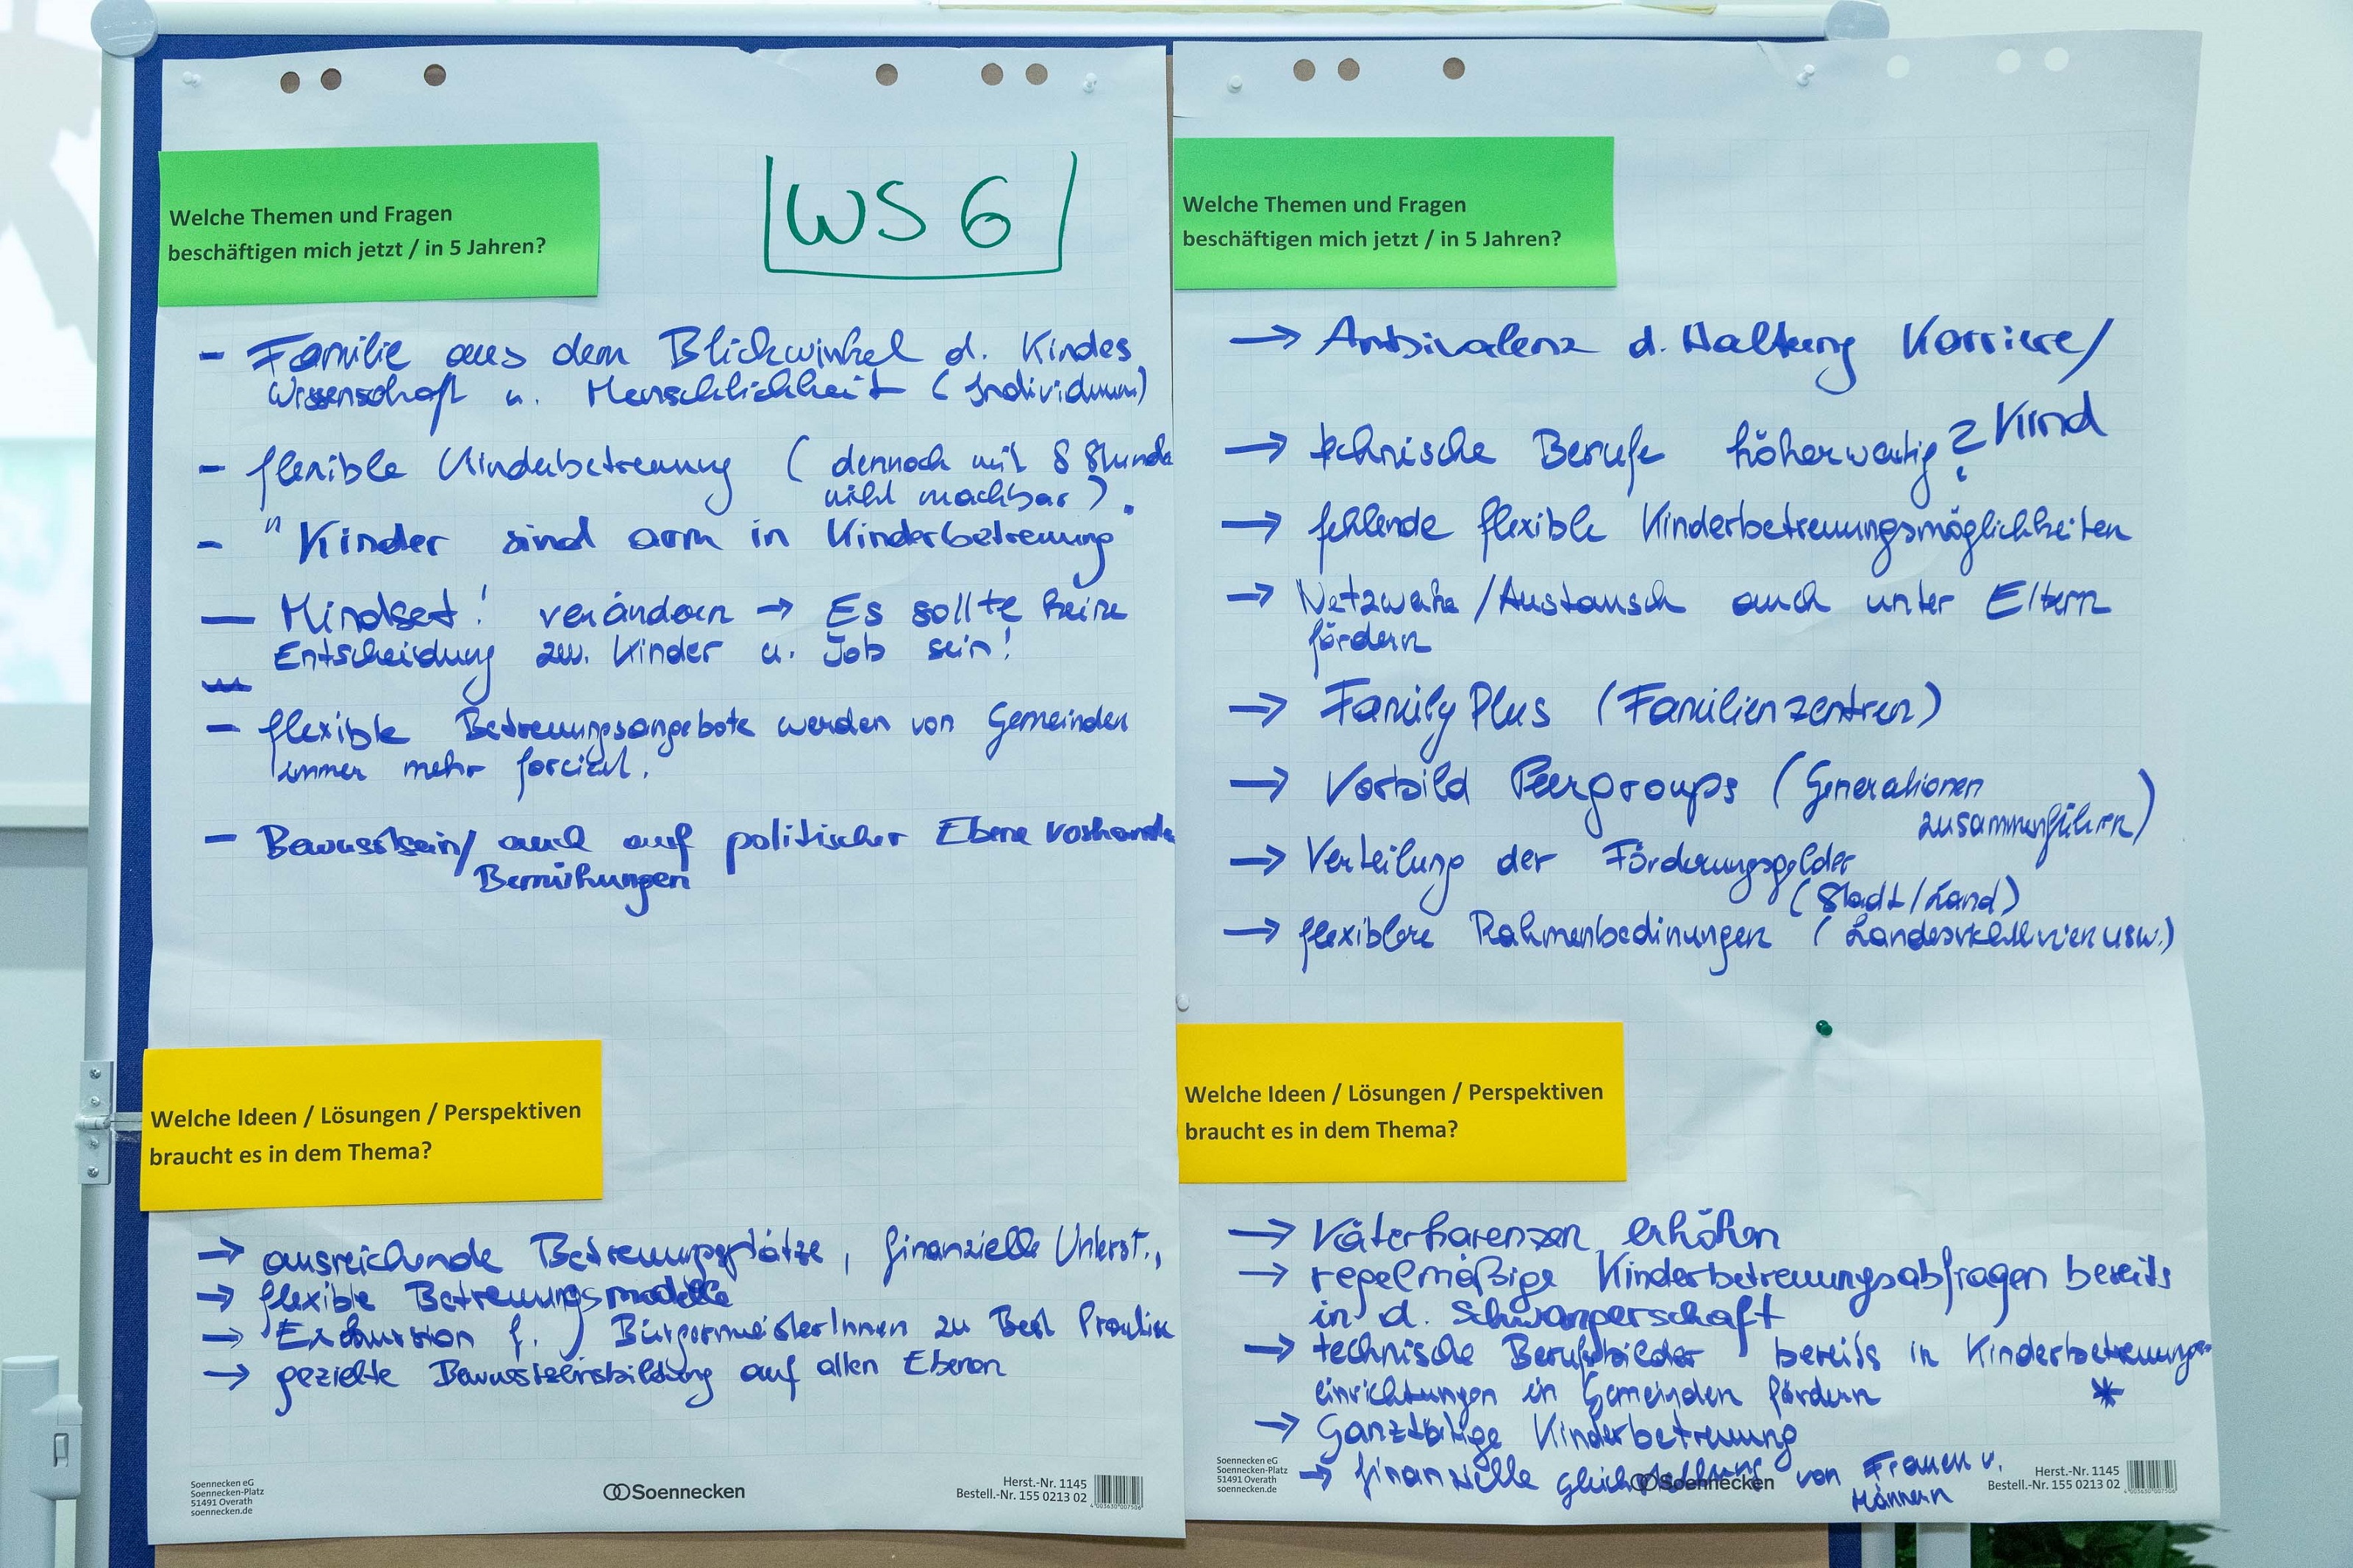 Welche Themen und Fragen
beschäftigen mich jetzt / in 5 Jahren?
WS 6
- Familie aus dem Blickwinkel d. Kindes
Wissenschaft u. Menschlichkeit (Individuum)
- flexible Kinderbetreuung (dennoch mit 8 Stunde
nicht machbar).
- "Kinder sind arm in Kinderbetreuung
- Mindset! verändern → Es sollte keine
Entscheidung zw. Kinder u. Job sein!
- flexible Betreuungsangebote werden von Gemeinden
immer mehr forciert.
- Bewusstsein/ auch auf politischer Ebene vorhande
Bemühungen
Welche Ideen / Lösungen / Perspektiven
braucht es in dem Thema?
→ ausreichende Betreuungsplätze, finanzielle Unterst.,
→ flexible Betreuungsmodelle
→ Exkursion f. BürgermeisterInnen zu Best Practise
→ gezielte Bewusstseinsbildung auf allen Ebenen
Soennecken eG
Soennecken-Platz
51491 Overath
soennecken.de
Soennecken
Herst.-Nr. 1145
Bestell.-Nr. 155 0213 02
4"003630"007506
Welche Themen und Fragen
beschäftigen mich jetzt / in 5 Jahren?
→ Ambivalenz d. Haltung Karriere/
Kind
→ technische Berufe höherwertig?
→ fehlende flexible Kinderbetreuungsmöglichkeiten
→ Netzwerke/Austausch auch unter Eltern
fördern
→ Family Plus (Familienzentren)
→ Vorbild Peergroups (Generationen
zusammenführen)
→ Verteilung der Förderungsgelder
(Stadt/Land)
→ flexiblere Rahmenbedinungen ( usw.)
Welche Ideen / Lösungen / Perspektiven
braucht es in dem Thema?
→ Väterkarenzen erhöhen
→ regelmäßige Kinderbetreuungsabfragen bereits
in d. Schwangerschaft
→ technische Berufsbilder bereits in Kinderbetreuungs-
einrichtungen in Gemeinden fördern *
→ Ganztätige Kinderbetreuung
→ finanzielle Gleichstellung von Frauen u.
Männern
Soennecken eG
Soennecken-Platz
51491 Overath
soennecken.de
Soennecken
Herst.-Nr. 1145
Bestell.-Nr. 155 0213 02